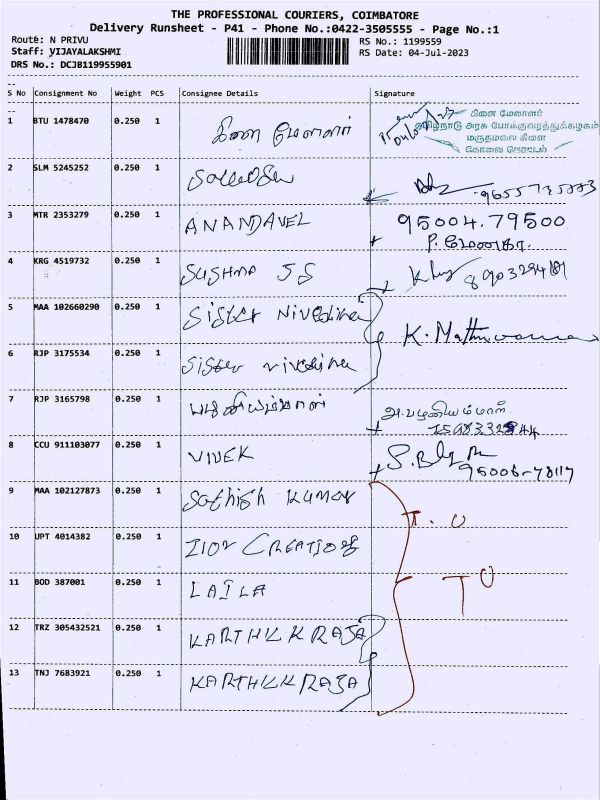 THE PROFESSIONAL COURIERS, COIMBATORE
Delivery Runsheet - P41 - Phone No.:0422-3505555 - Page No.:1
Route: N PRIVU
RS No.: 1199559
Staff: VIJAYALAKSHMI
RS Date: 04-Jul-2023
DRS No.: DCJB119955901
S No Consignment No Weight PCS Consignee Details Signature
1 BTU 1478470 0.250 1 கிளை மேலாளர்
கிளை மேலாளர்
தமிழ்நாடு அரசு போக்குவரத்துக்கழகம்
மருதமலை கிளை
கோவை கோட்டம்
2 SLM 5245252 0.250 1
3 MTR 2353279 0.250 1 ANANDAVEL 95004.79500
P. மேனகா.
4 KRG 4519732 0.250 1 SUSHMA JS
5 MAA 102660290 0.250 1 Sister Nivedina
6 RJP 3175534 0.250 1 Sister nivedina
K. Mathu
7 RJP 3165798 0.250 1 பழனியம்மாள் அ. பழனியம்மாள்
8 CCU 911103077 0.250 1 VIVEK
9 MAA 102127873 0.250 1 Sathish Kumar
T. O
10 UPT 4014382 0.250 1 ZION CREATIONS
11 BOD 387001 0.250 1 LAILA TO
12 TRZ 305432521 0.250 1 KARTHIK K RAJA
13 TNJ 7683921 0.250 1 KARTHIK K RAJA